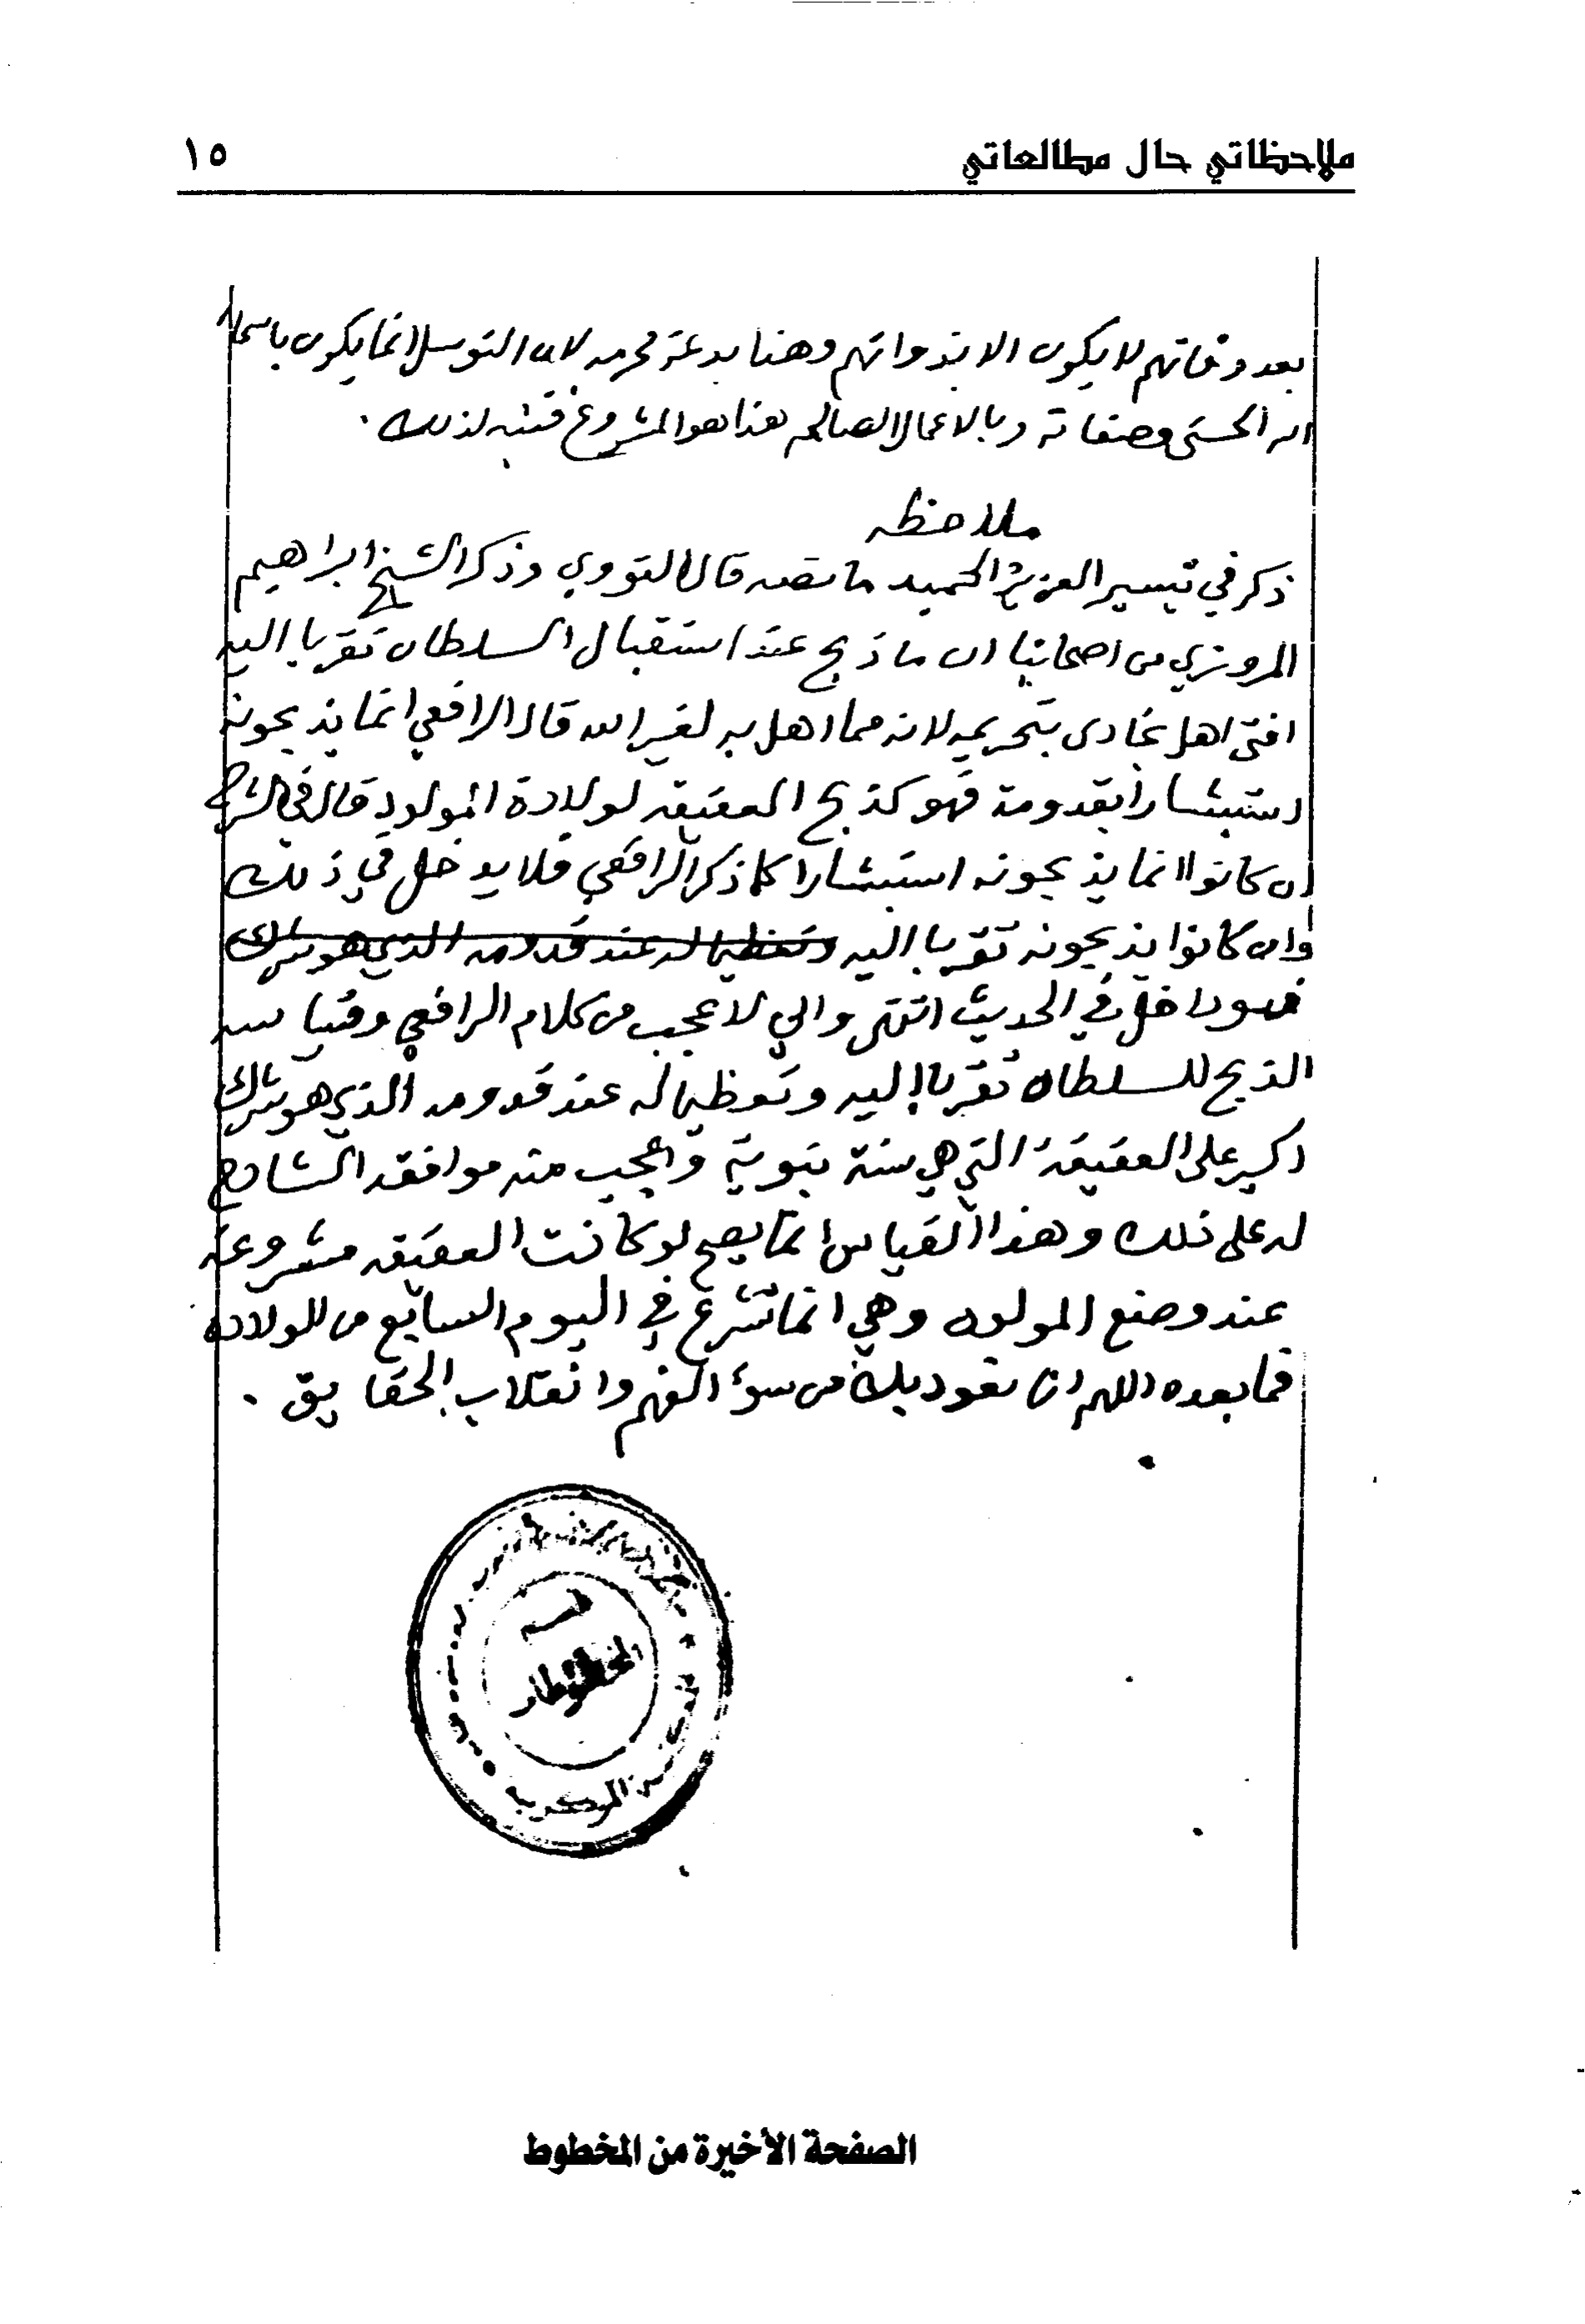 ملاحظاتي حال مطالعاتي
١٥
بعد وفاتهم لا يكون الا بذواتهم وهذا بدعة محرمه لان التوسل انما يكون باسماء
الله الحسنى وصفاته وبالاعمال الصالحه هذا هو المشروع فتنبه لذلك .
ملاحظه
ذكر في تيسير العزيز الحميد ما نصه قال النووي وذكر الشيخ ابراهيم
المروزي من اصحابنا ان ما ذبح عند استقبال السلطان تقربا اليه
افتى اهل بخارى بتحريمه لانه مما اهل به لغير الله قال الرافعي انما يذبحونه
استبشارا بقدومه فهو كذبح العقيقه لولادة المولود قال في الشرح
ان كانوا انما يذبحونه استبشارا كما ذكر الرافعي فلا يدخل في ذلك
وان كانوا يذبحونه تقربا اليه وتعظيما له عند قدومه الذي هو شرك
فهو داخل في الحديث انتهى واني لاعجب من كلام الرافعي وقياسه
الذبح للسلطان تقربا اليه وتعظيما له عند قدومه الذي هو شرك
اكبر على العقيقة التي هي سنة نبوية واعجب منه موافقه الشارح
له على ذلك وهذا القياس انما يصح لو كانت العقيقه مشروعه
عند وضع المولود وهي انما تشرع في اليوم السابع من الولادة
فما بعده اللهم انا نعوذ بك من سوء الفهم وانقلاب الحقايق .
قسم
المخطوطات
المركزية
الصفحة الأخيرة من المخطوط